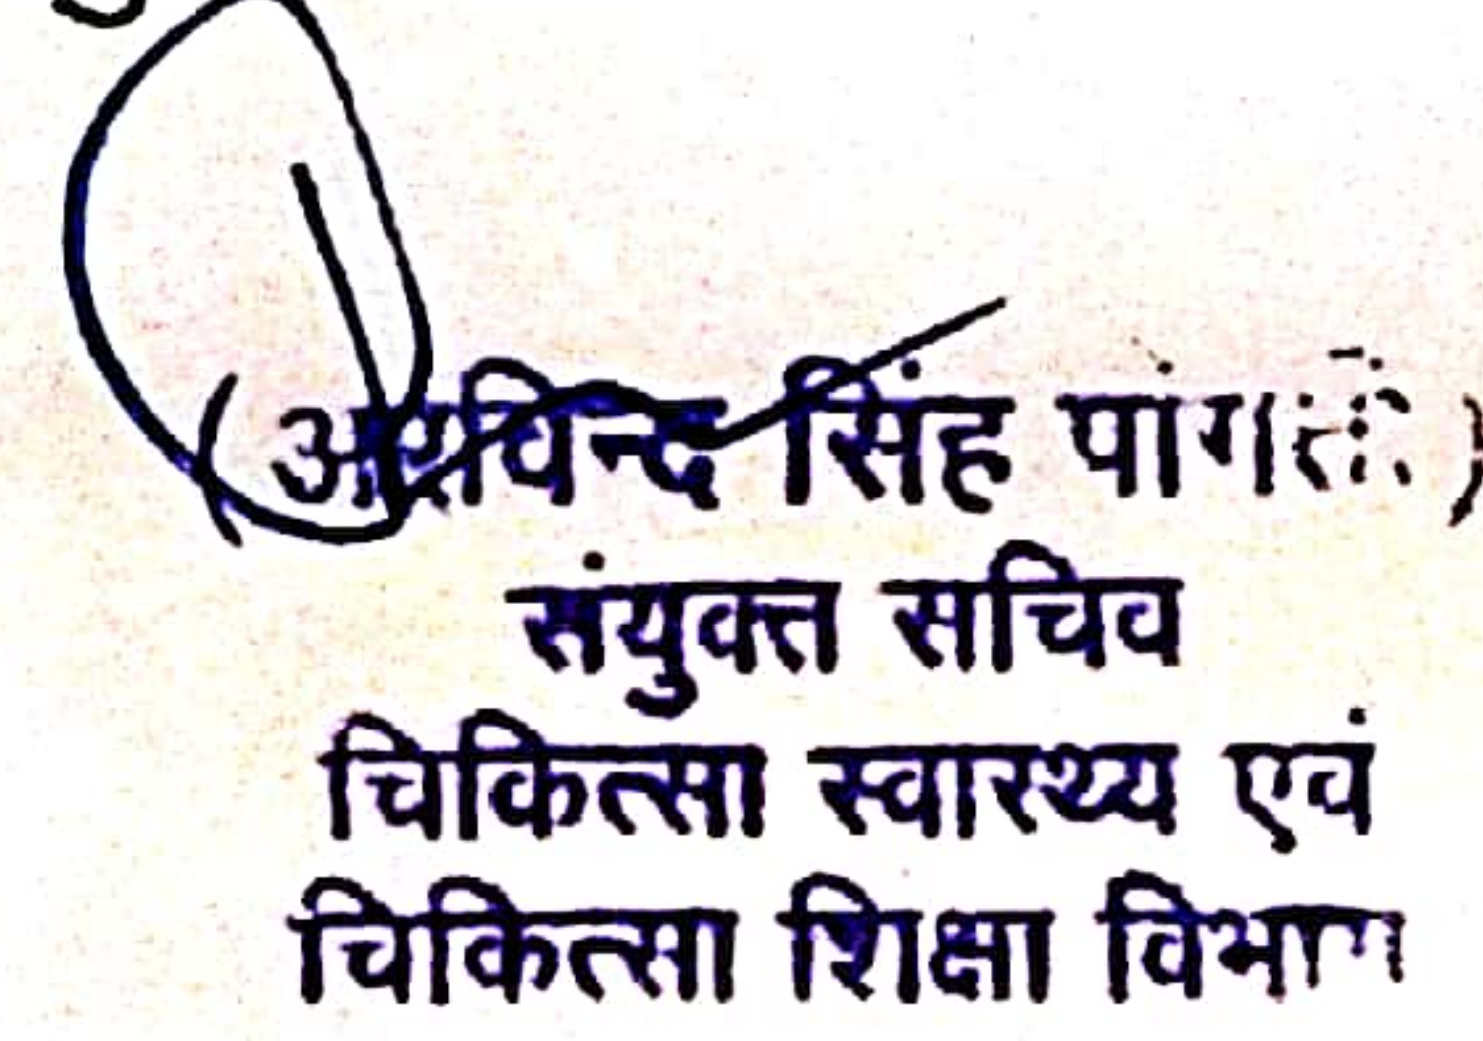 (अरविन्द सिंह पांगती)
संयुक्त सचिव
चिकित्सा स्वास्थ्य एवं
चिकित्सा शिक्षा विभाग